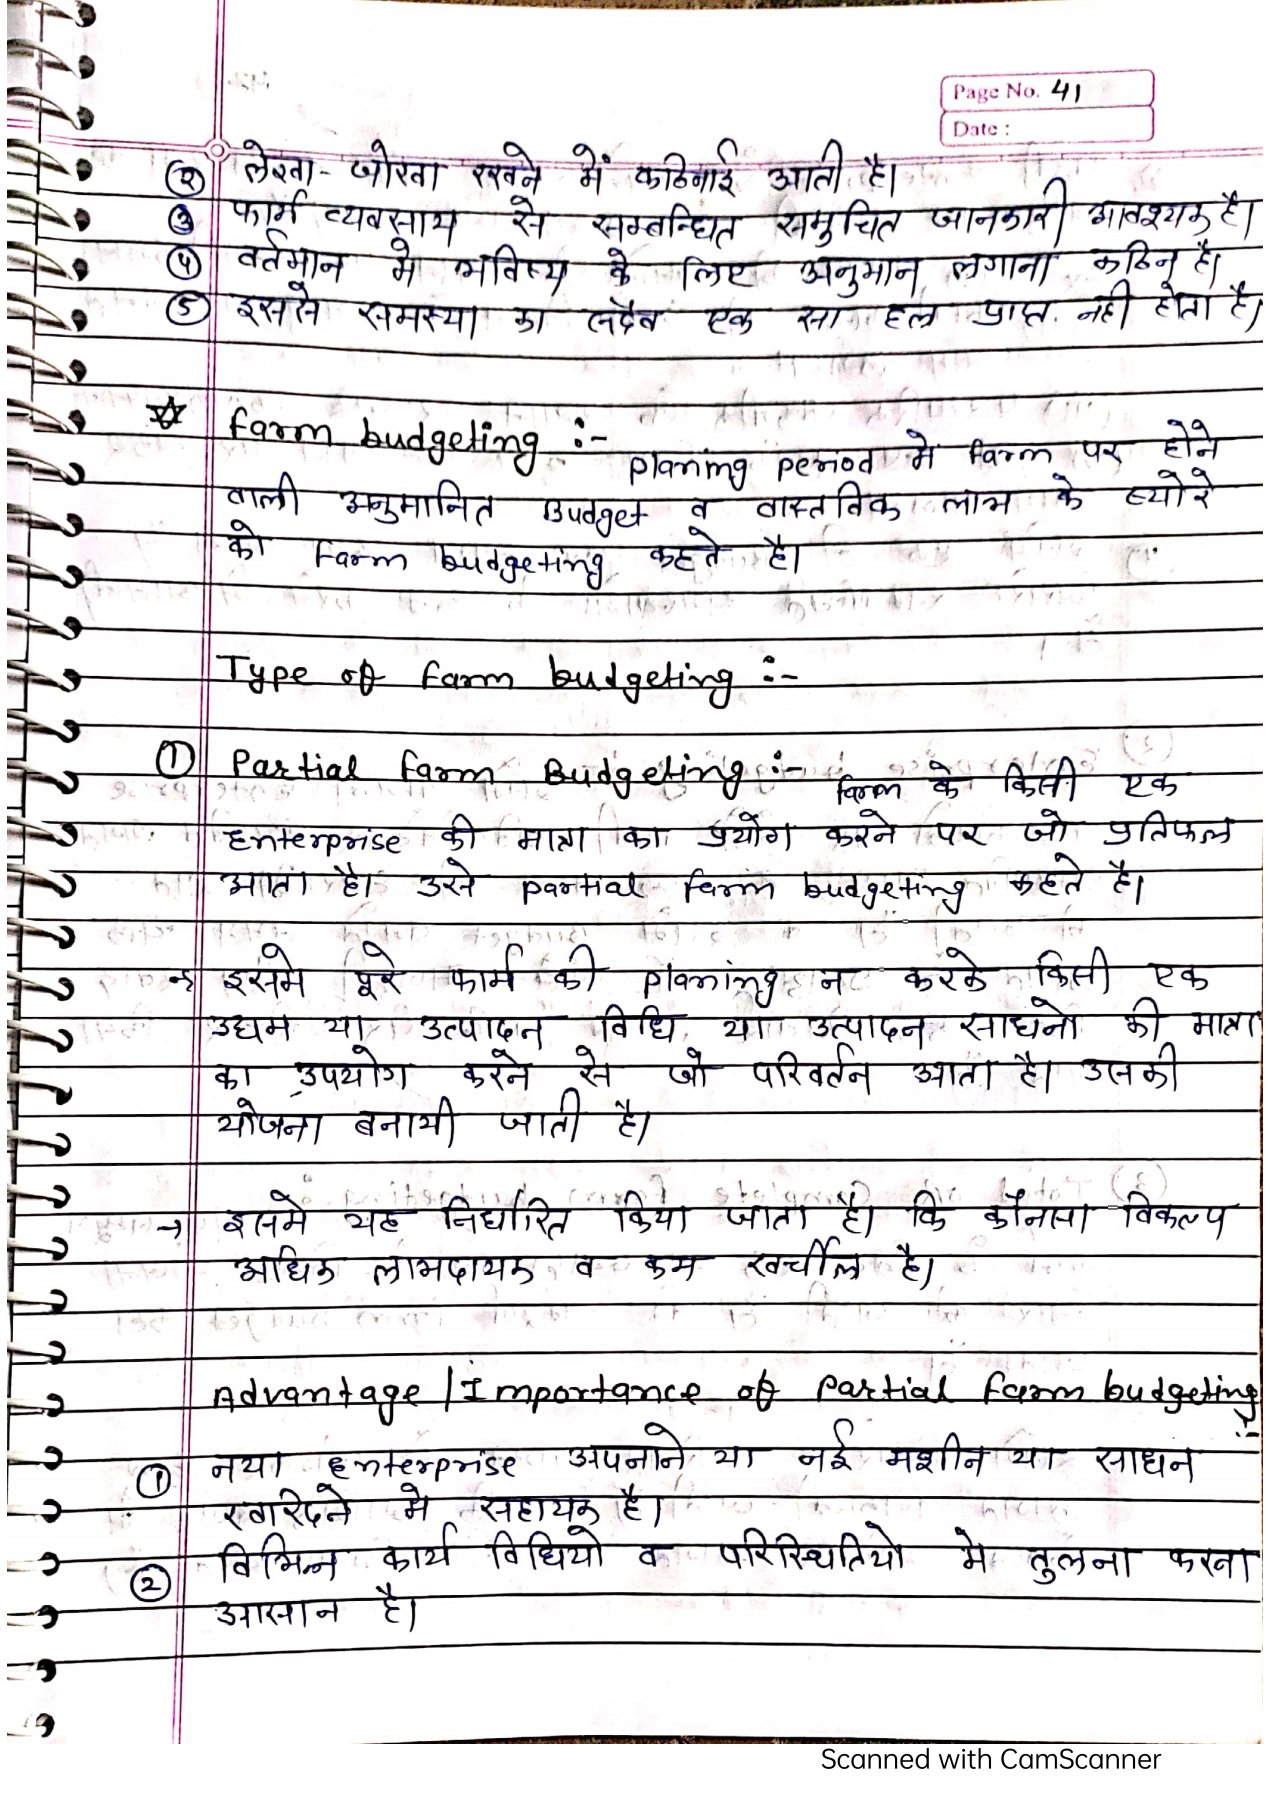 Page No. 41
Date :
② लेखा-जोखा रखने में कठिनाई आती है।
③ फार्म व्यवसाय से सम्बन्धित समुचित जानकारी आवश्यक है।
④ वर्तमान मे भविष्य के लिए अनुमान लगाना कठिन है।
⑤ इससे समस्या का सदैव एक सा हल प्राप्त नही होता है।
☆ farm budgeting :-
planing period मे farm पर होने
वाली अनुमानित Budget व वास्तविक लाभ के ब्योरे
को farm budgeting कहते है।
Type of farm budgeting :-
① Partial farm Budgeting :-
farm के किसी एक
Enterprise की मात्रा का प्रयोग करने पर जो प्रतिफल
आता है। उसे partial farm budgeting कहते है।
→ इसमे पूरे फार्म की planing न करके किसी एक
उद्यम या उत्पादन विधि या उत्पादन साधनो की मात्रा
का उपयोग करने से जो परिवर्तन आता है। उसकी
योजना बनायी जाती है।
→ इसमे यह निर्धारित किया जाता है। कि कौनसा विकल्प
अधिक लाभदायक व कम खर्चील है।
Advantage / Importance of Partial farm budgeting :-
① नया Enterprise अपनाने या नई मशीन या साधन
खरिदने मे सहायक है।
② विभिन्न कार्य विधियो व परिस्थितियो मे तुलना करना
आसान है।
Scanned with CamScanner